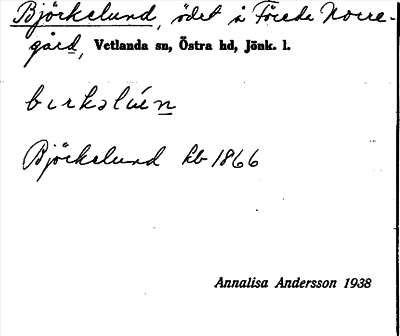 Björkelund, ödet å Förede Norre-
gård, Vetlanda sn, Östra hd, Jönk. l.
Björkelund kb 1866
Annalisa Andersson 1938